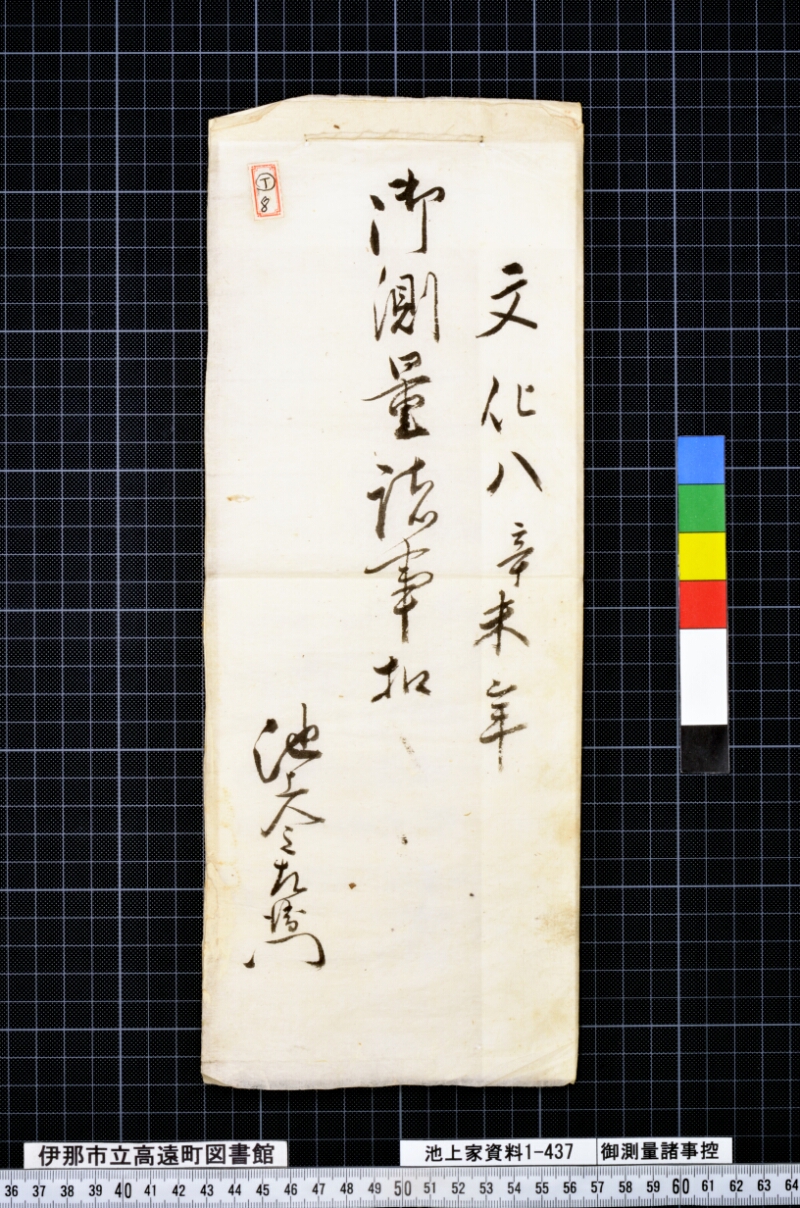 文化八辛未年
御測量諸事扣
池上
左衛門
T
8
伊那市立高遠町図書館
池上家資料1-437
御測量諸事控
36 37 38 39 40 41 42 43 44 45 46 47 48 49 50 51 52 53 54 55 56 57 58 59 60 61 62 63 64